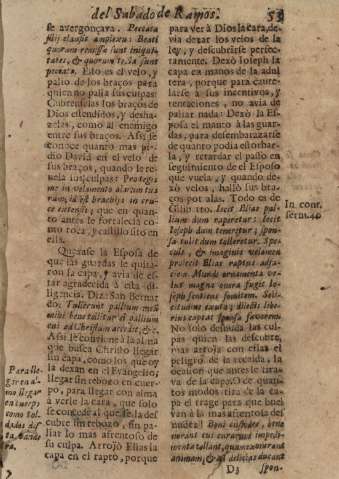 del Sabado de Ramos. 53
se avergonçava. Peccata
filij clausit amplexu: Beati
quorum remissæ sunt iniquitates,
& quorum tecta sunt
peccata. Esto es el velo, y
palio de los braços para
quien no palia sus culpas.
Cubrenselas los braços de
Dios estendidos, y deshazelas,
como al enemigo
entre sus braços. Assi se
conoce quanto mas pidio
David en el velo de
sus braços, quando le reveló
sus culpas: Protegisme
in velamento alarum tuarum,
id est brachijs in cruce
extensis; que en quanto
antes le fortaleció como
roca, y castillo sito en
ella.
Quexase la Esposa de
que las guardas le quitaron
la capa, y avia de estar
agradecida à esta diligencia.
Diz San Bernardo:
Tulerunt pallium meum
mihi
ad Christum accedit, &c.
Assi le conviene à la alma
que busca Christo llegar
sin capa, como los que oy
la dexan en el Evangelio;
llegar sin rebozo en cuerpo,
para llegar con alma
à verle la cara, que solo
se concede al que se la descubre
sin rebozo, sin paliar
lo mas afrentoso de
su culpa. Arrojò Elias la
capa en el rapto, porque
Para llegar
en almo
llegar
en cuerpo
como soldados
para ver à Dios la cara, devia
dexar los velos de la
ley, y descubrirse perfectamente.
Dexò Ioseph la
capa en manos de la adultera,
porque para cautelarse
à sus incentivos, y
tentaciones, no avia de
paliar nada: Dexò la Esposa
el manto à las guardas,
para desembarazarse
de quanto podia estorbarla,
y retardar el passo en
seguimiento de el Esposo
que vuela, y quando dexò
velos, hallò sus braços
por alas. Todo es de
Gislib. 110. Iecit Elias pallium
dum raperetur: Iecit
Ioseph dum teneretur; sponsa
tulit dum tolleretur. Specula,
& imaginis velamen
proiecit Elias raptus
Mundi ornamenta velut
magna onera fugit Ioseph
sentiens fomitem. Solicitudinum
curas; diebus liberius
captat Sponsa favorem.
No solo desnuda las culpas
quien las descubre,
mas arroja con ellas el
peligro de la recaida, la
ocasion que antes le tirava
de la capa. O de quantos
modos tira de la capa
el trage para que buelvan
à la mas afrentosa desnudez!
Boni custodes, bene
morant tui curarum impedimenta
tollant,
animam, & ad delicias ducant
In cont.
serm. 40
D3 spon-